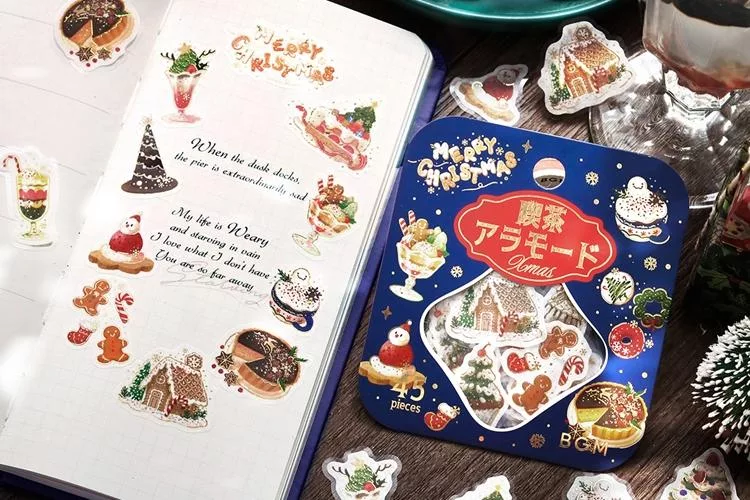 MERRY
CHRISTMAS
When the dusk docks,
the pier is extraordinarily sad
My life is Weary
and starving in vain
I love what I don't have
You are so far away
MERRY
CHRISTMAS
BGM
喫茶
アラモード
Xmas
45
pieces
BGM